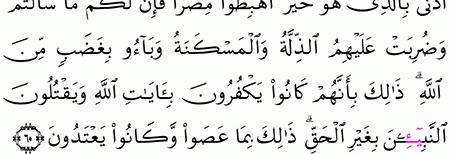 أَدْنَىٰ بِالَّذِى هُوَ خَيْرٌ ٱهْبِطُوا۟ مِصْرًا فَإِنَّ لَكُم مَّا سَأَلْتُمْ
وَضُرِبَتْ عَلَيْهِمُ ٱلذِّلَّةُ وَٱلْمَسْكَنَةُ وَبَآءُو بِغَضَبٍ مِّنَ
ٱللَّهِ ۗ ذَٰلِكَ بِأَنَّهُمْ كَانُوا۟ يَكْفُرُونَ بِـَٔايَٰتِ ٱللَّهِ وَيَقْتُلُونَ
ٱلنَّبِيٓـِٔـۧنَ بِغَيْرِ ٱلْحَقِّ ۗ ذَٰلِكَ بِمَا عَصَوا۟ وَّكَانُوا۟ يَعْتَدُونَ ﴿٦٠﴾